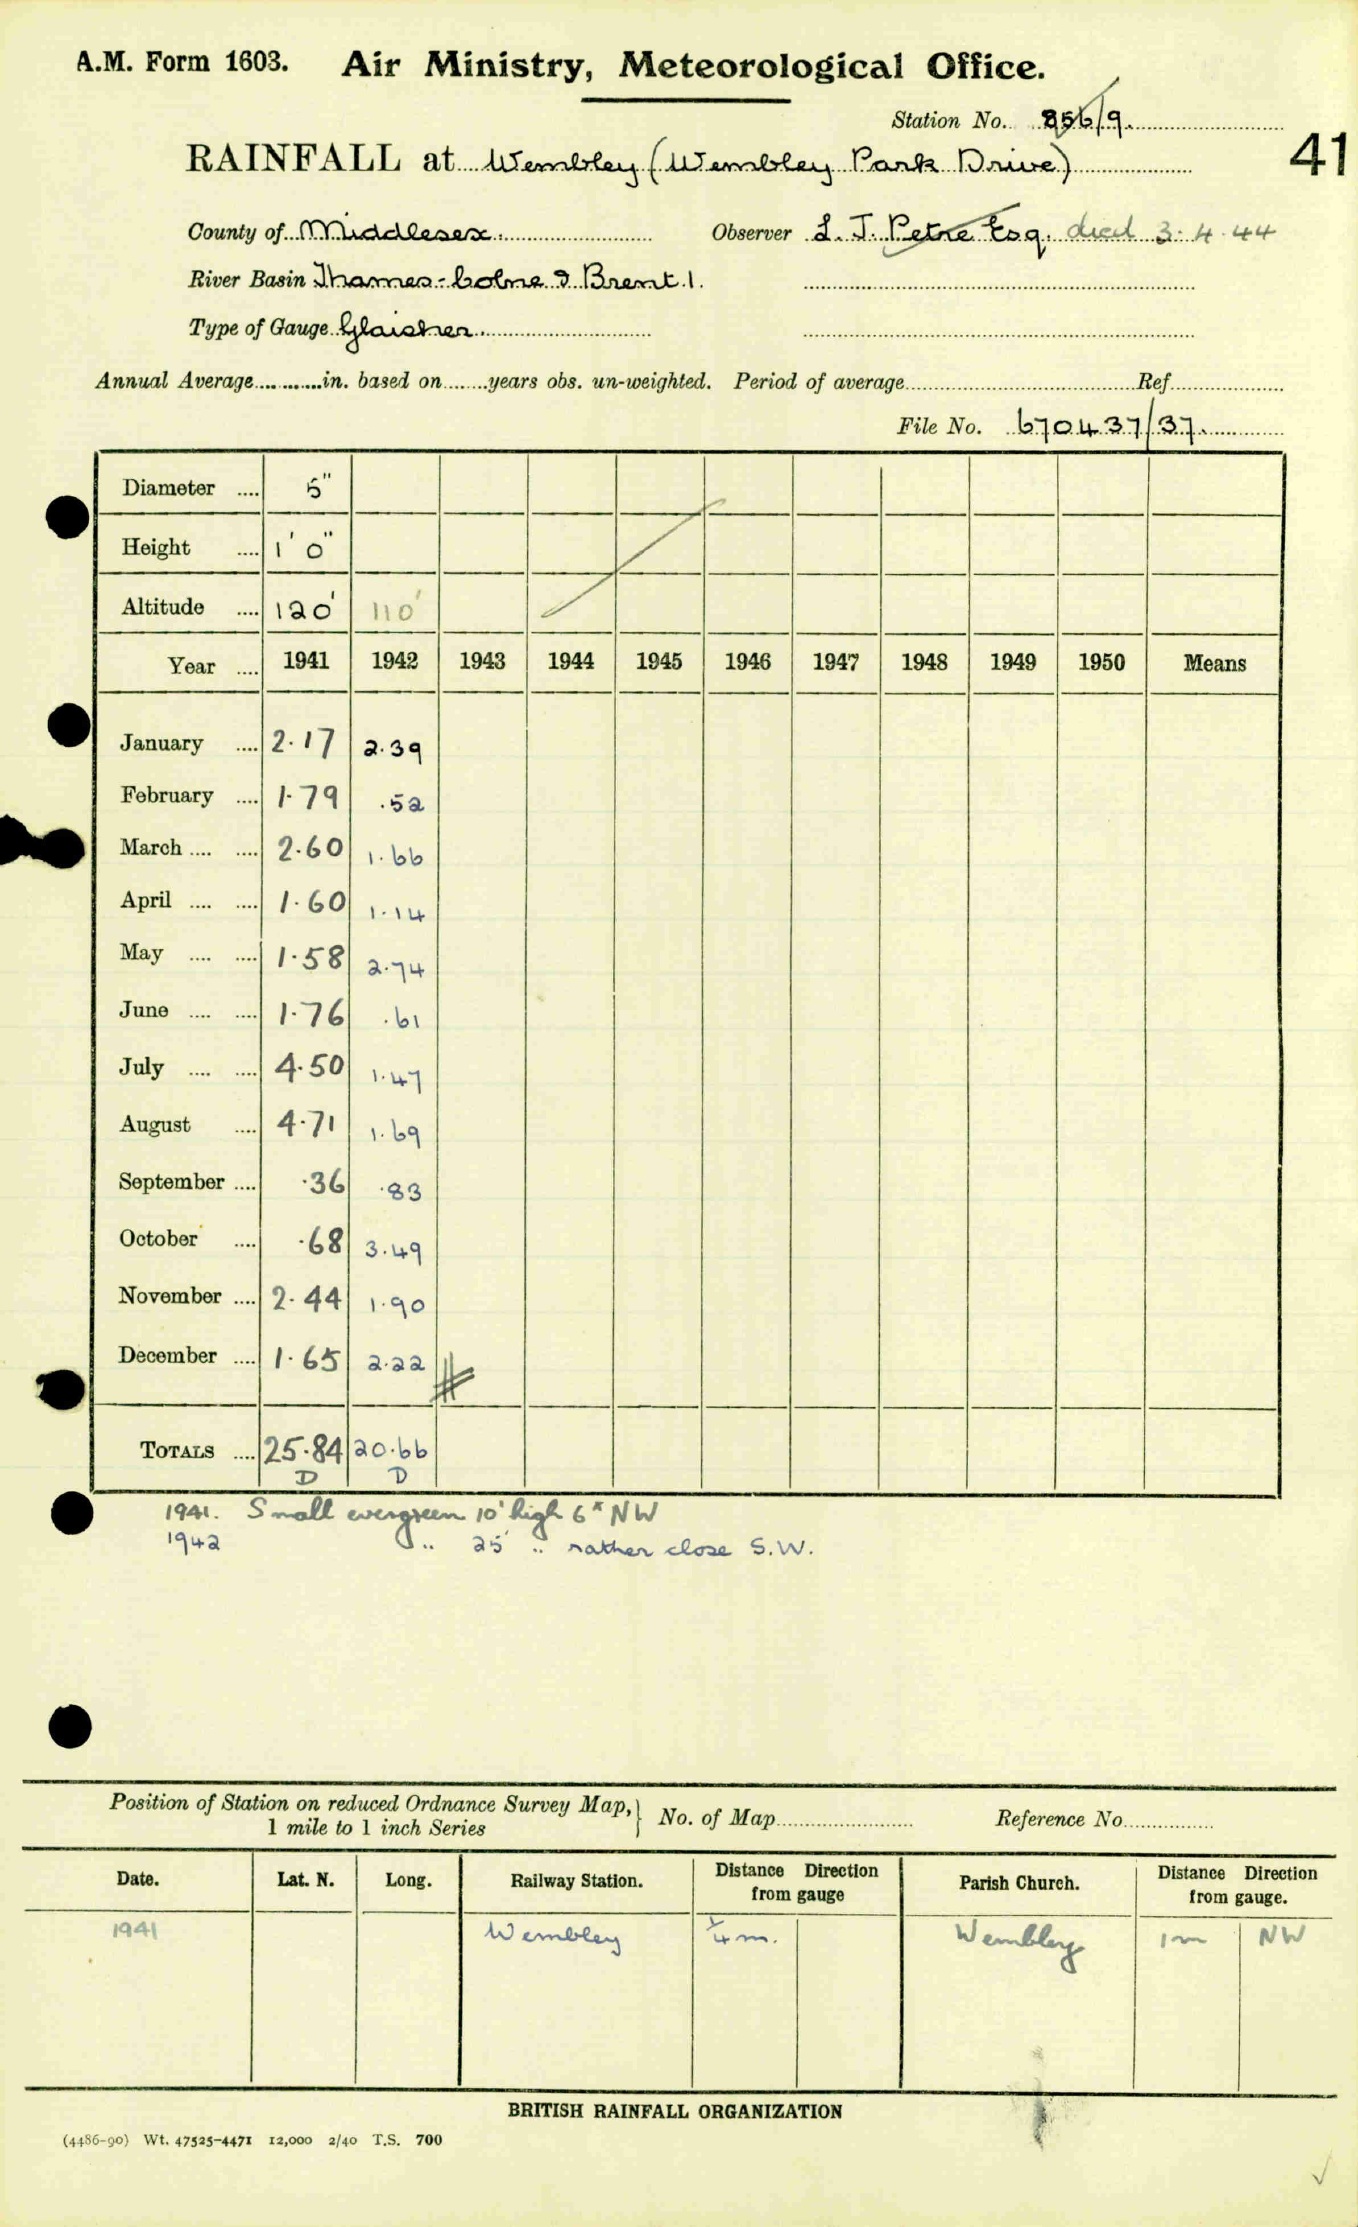 A.M. Form 1603. Air Ministry, Meteorological Office.
Station No. 856/9.
41
RAINFALL at Wembley (Wembley Park Drive)
County of Middlesex. Observer L. J. Petre Esq. died 3.4.44
River Basin Thames - Colne & Brent 1.
Type of Gauge Glaisher.
Annual Average............in. based on........years obs. un-weighted. Period of average.......... Ref..........
File No. 670437/37.
Diameter .... 5"
Height .... 1' 0"
Altitude .... 120' 110'
Year .... 1941 1942 1943 1944 1945 1946 1947 1948 1949 1950 Means
January .... 2.17 2.39
February .... 1.79 .52
March .... .... 2.60 1.66
April .... .... 1.60 1.14
May .... .... 1.58 2.74
June .... .... 1.76 .61
July .... .... 4.50 1.47
August .... 4.71 1.69
September .... .36 .83
October .... .68 3.49
November .... 2.44 1.90
December .... 1.65 2.22
TOTALS .... 25.84 20.66
D D
1941. Small evergreen 10' high 6x NW
1942 " 25' " rather close S.W.
Position of Station on reduced Ordnance Survey Map, 1 mile to 1 inch Series } No. of Map.......... Reference No..........
Date. Lat. N. Long. Railway Station. Distance Direction from gauge Parish Church. Distance Direction from gauge.
1941 Wembley 1/4 m. Wembley 1m NW
BRITISH RAINFALL ORGANIZATION
(4486-90) Wt. 47525-4471 12,000 2/40 T.S. 700